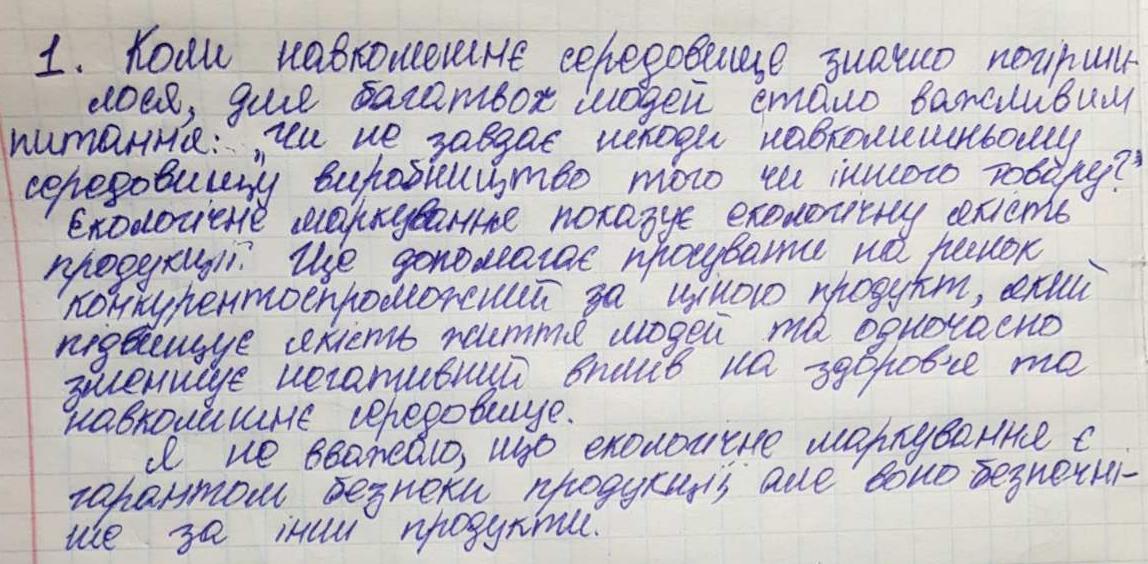 1. Коли навколишнє середовище значно погірши-
лося, для багатьох людей стало важливим
питання: „Чи не завдає шкоди навколишньому
середовищу виробництво того чи іншого товару?"
Екологічне маркування показує екологічну якість
продукції. Це допомагає просувати на ринок
конкурентоспроможний за ціною продукт, який
підвищує якість життя людей та одночасно
зменшує негативний вплив на здоров'я та
навколишнє середовище.
Я не вважаю, що екологічне маркування є
гарантом безпеки продукції, але воно безпечні-
ше за інші продукти.